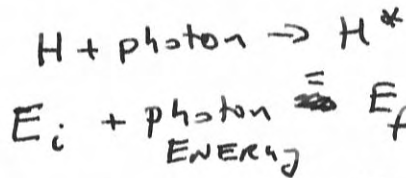 H + photon → H*
Eᵢ + photon = E_f
ENERGY